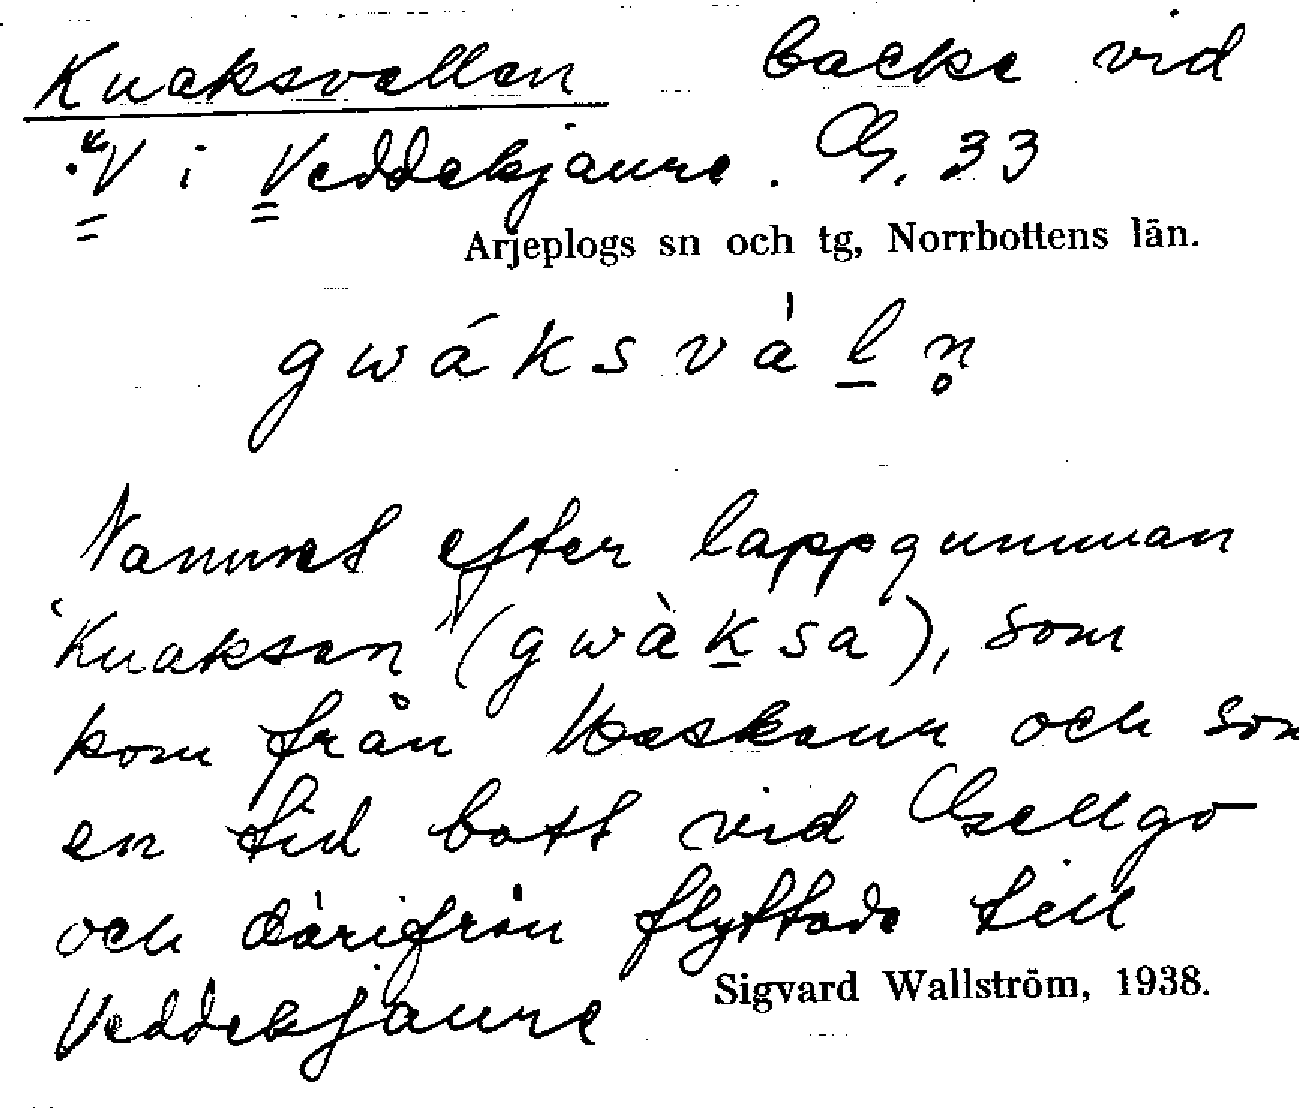 Kuaksvallen backe vid
V i Veddekjaure. G. 33
Arjeplogs sn och tg, Norrbottens län.
gwáksvàl̲n̥
Namnet efter lappgumman
'Kuaksan' (gwàk̲sa), som
kom från och som
en tid bott vid
och därifrån flyttade till
Veddekjaure
Sigvard Wallström, 1938.